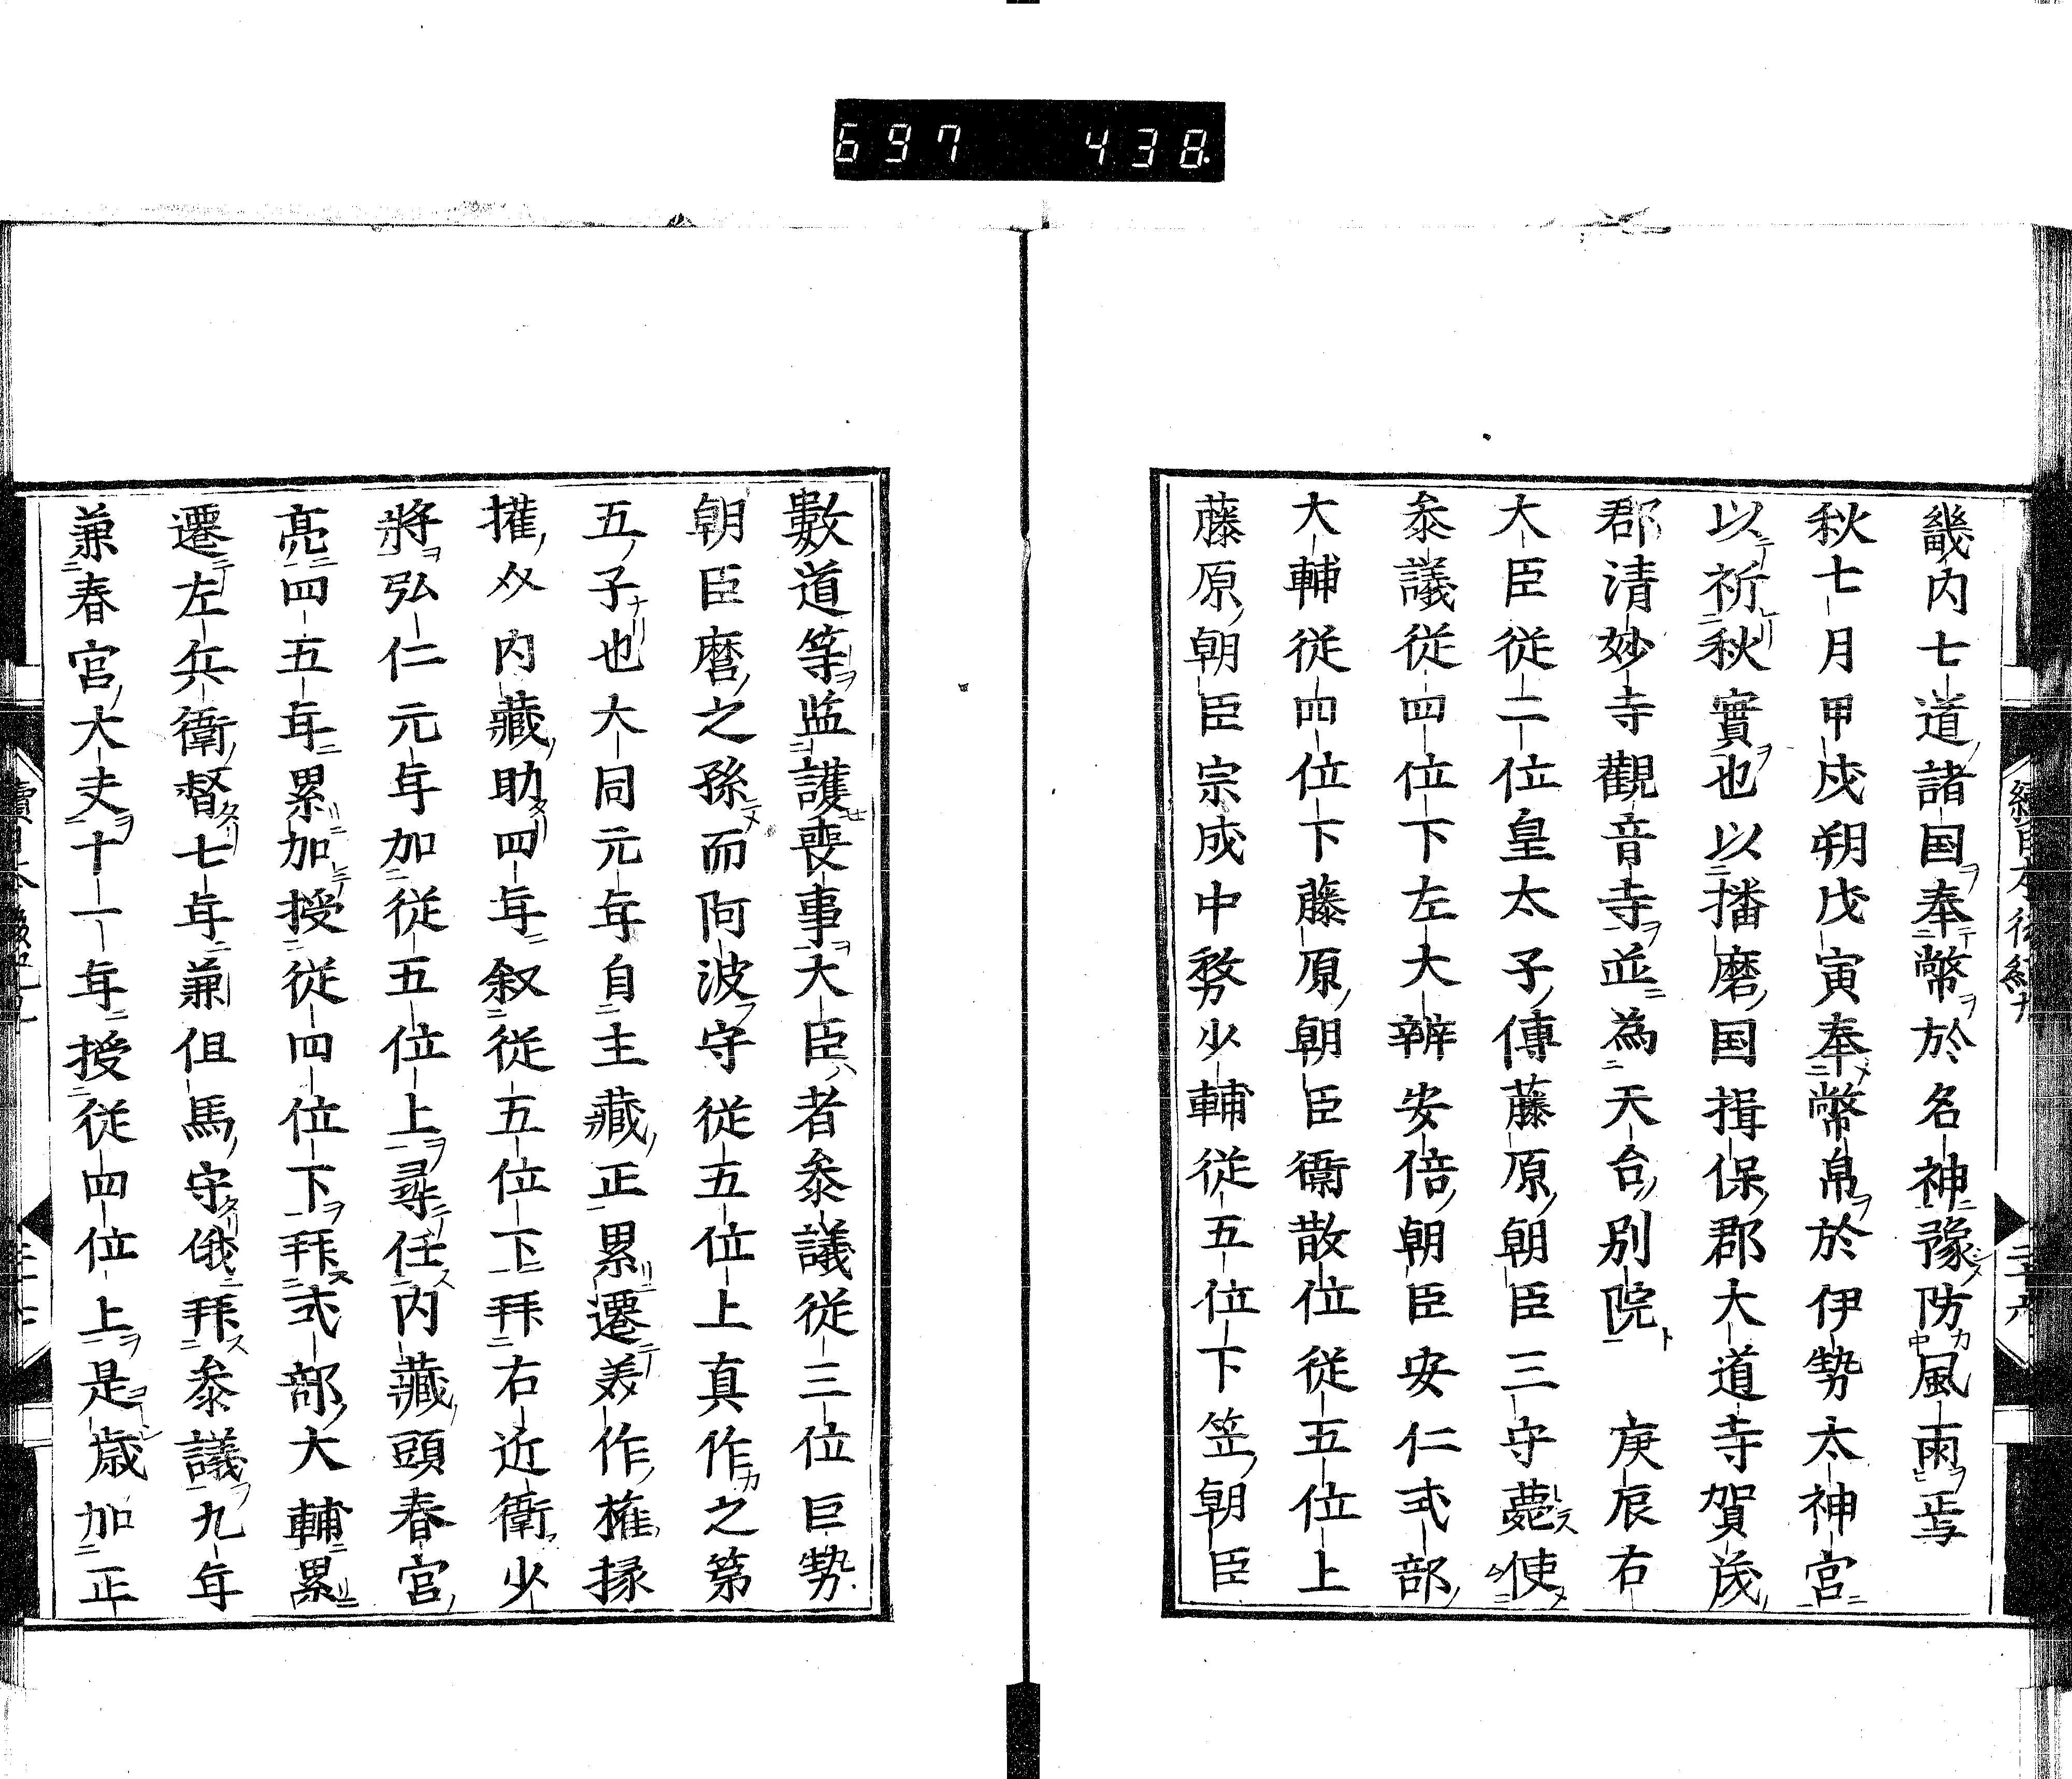 697 438
畿内七道諸国奉幣於名神豫防風雨焉
秋七月甲戌朔戊寅奉幣帛於伊勢太神宮
以祈秋實也以播磨国揖保郡大道寺賀茂
郡清妙寺觀音寺並為天台別院 庚辰右
大臣従二位皇太子傳藤原朝臣三守薨使
叅議従四位下左大辨安倍朝臣安仁式部
大輔従四位下藤原朝臣衞散位従五位上
藤原朝臣宗成中務少輔従五位下笠朝臣
數道等監護喪事大臣者叅議従三位巨勢
朝臣麿之孫而阿波守従五位上真作之第
五子也大同元年自主藏正累遷美作權掾
擢内藏助四年叙従五位下拜右近衛少
將弘仁元年加従五位上尋任内藏頭春宮
亮四五年累加授従四位下拜式部大輔累
遷左兵衛督七年兼但馬守俄拜叅議九年
兼春宮大夫十一年授従四位上是歳加正